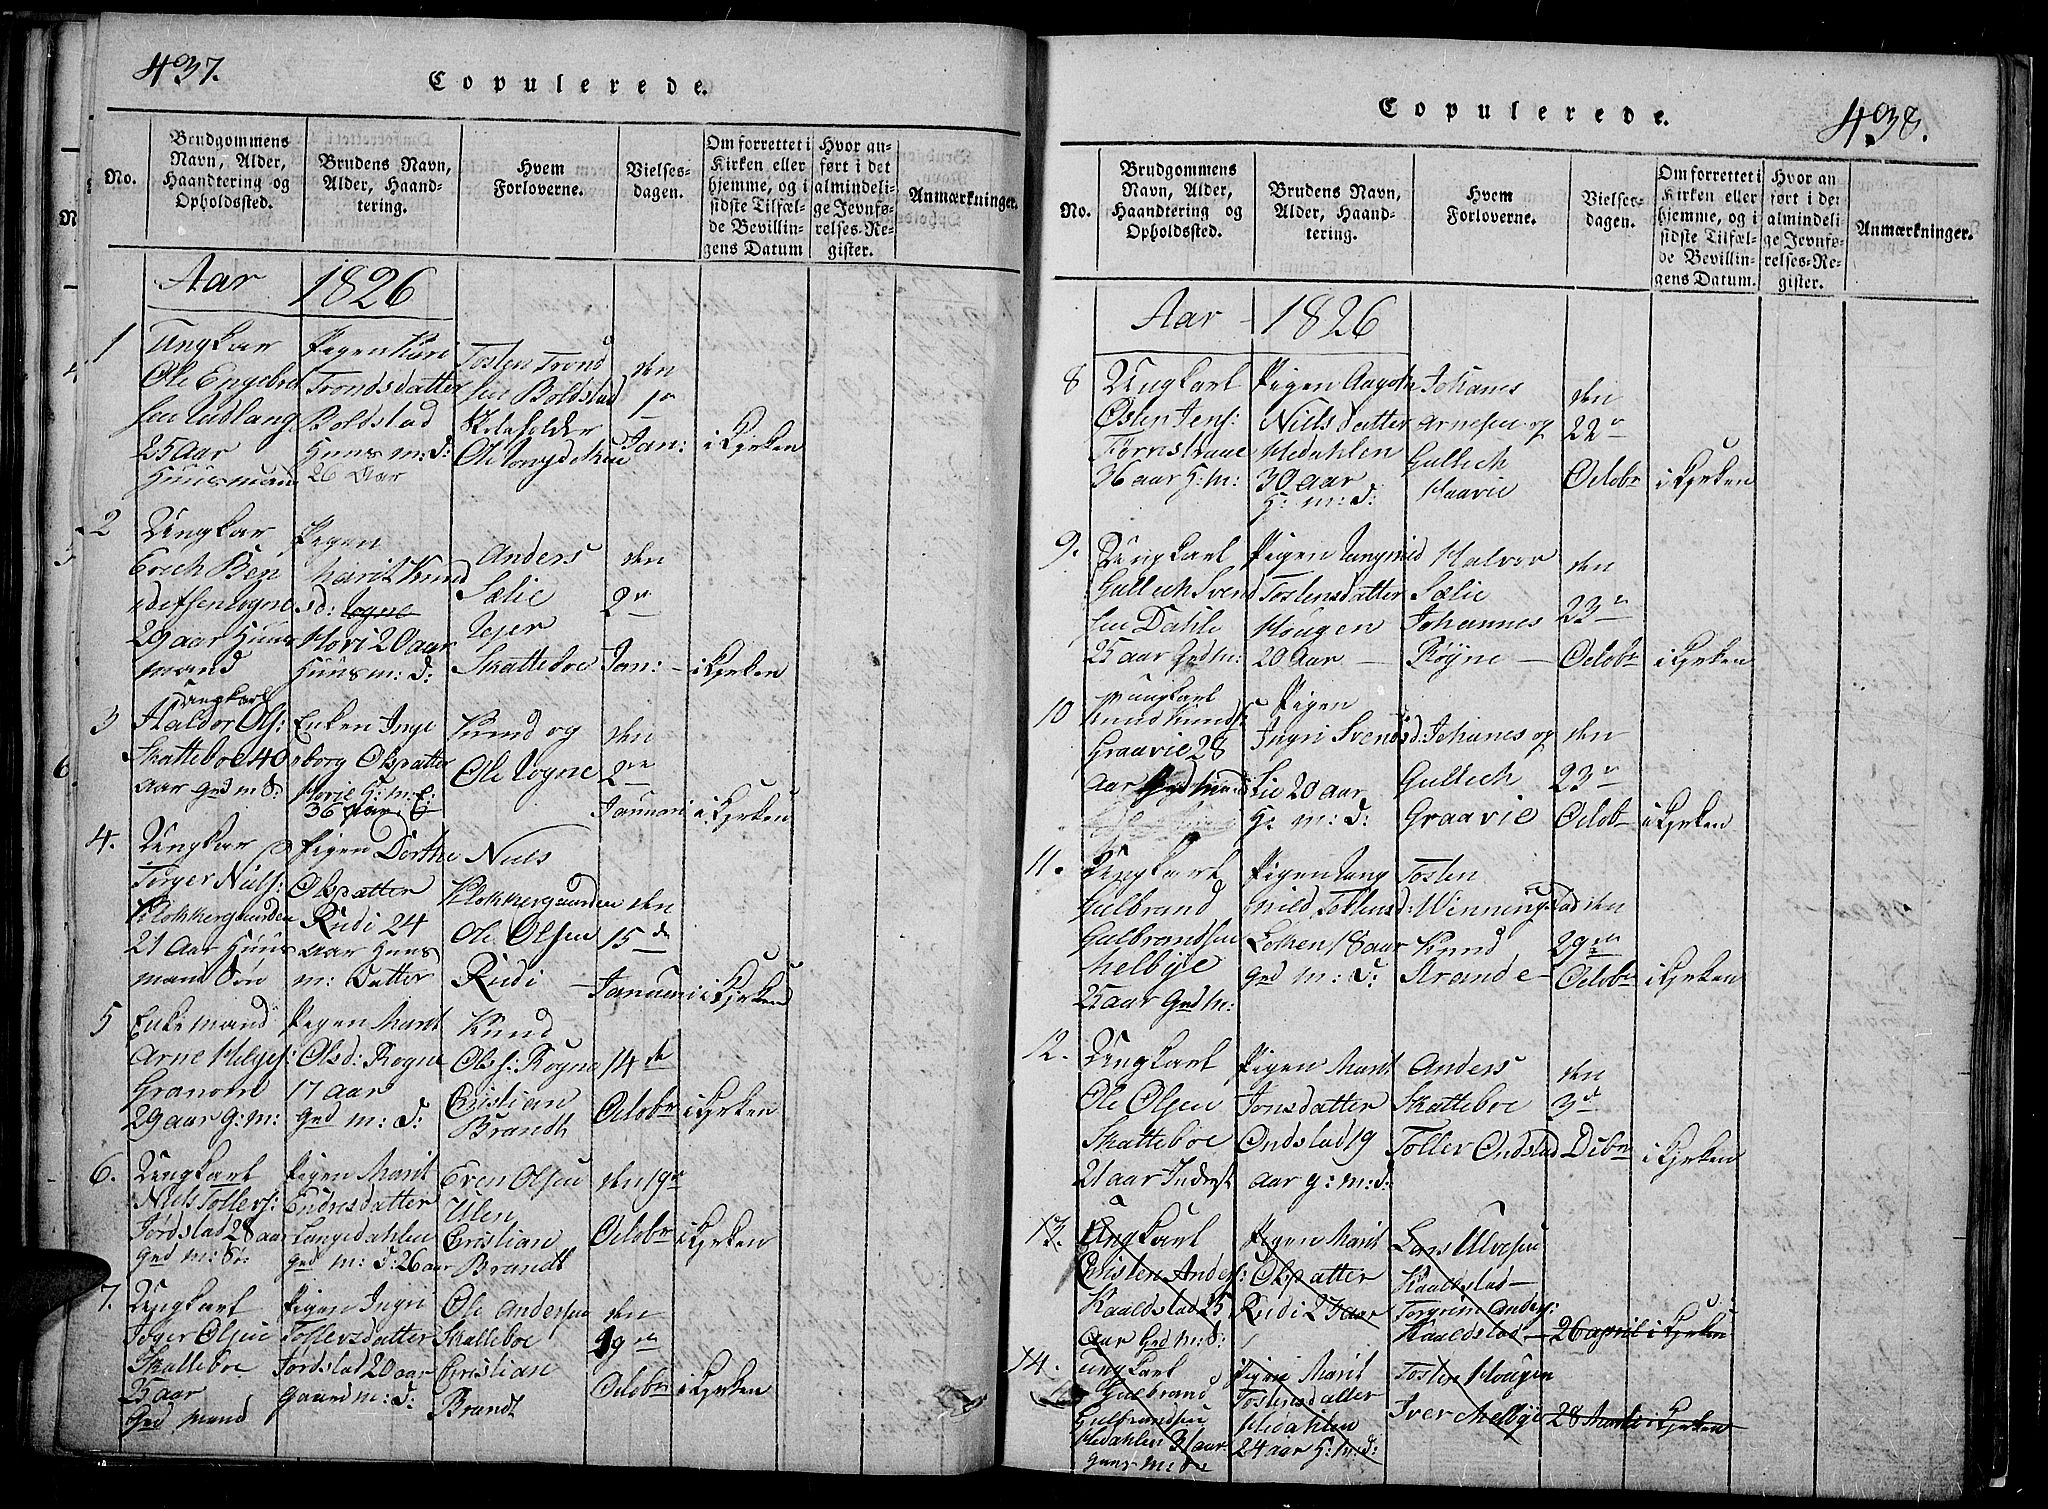 437.
Copulerede.
No.
Brudgommens
Navn, Alder,
Haandtering og
Opholdssted.
Brudens Navn,
Alder, Haand-
tering.
Hvem
Forloverne.
Vielses-
dagen.
Om forrettet i
Kirken eller
hjemme, og i
sidste Tilfæl-
de Bevillin-
gens Datum
Hvor an-
ført i det
almindeli-
ge Jevnfø-
relses-Re-
gister.
Anmærkninger.
Aar 1826
1
Ungkar
Ole Engebret
sen
25 Aar
Huusmand
Pigen Kari
Trondsdatter
Boldstad
Huus m: d:
26 Aar
Tosten Trond
sen Boldstad
den
1r
Jan:
i Kjrken
2
Ungkar
Erich Ben
29 aar Huus
mand
Pigen
Marit Knud
sd:
Hovi 20 aar
Huus m: d:
Anders
Sælie
Skatteboe
den
2r
Jan:
i Kjrken
3
Ungkarl
Haldor Ols:
Skatteboe 40
aar Grd m S:
Enken Inge
borg Olsdatter
36 aar
Knud og
Ole
den
2en
Januari
i Kjrken
4.
Ungkar
Torger Niels:
Klokkergaarden
21 Aar Huus
mand Søn
Pigen Dorthe
Olsdatter
Rudi 24
aar Huus
m: Datter
Niels
Klokkergaarden
Ole Olsen
Rudi
den
15de
Januari
i Kjrken
5
Enkemand
Arne Helges:
29 aar g: m:
Pigen Marit
Olsd: Rogne
17 aar
grd m: d:
Knud
Ols: Rogne
Cristian
Brandt
14de
Octobr
i Kjrken
6.
Ungkarl
Niels Tollers:
Jordstad 28 aar
Grd m: S:
Pigen Marit
Endresdatter
Langedahlen
grd m: d: 26 aar
Even Olsen
Cristian
Brandt
den 19de
Octobr
i Kjrken
7.
Ungkarl
Olsen
Skatteboe
25 aar
Grd mand
Pigen Ingri
Tollersdatter
Jordstad 20 aar
Gaard m: d:
Ole Andersen
Skatteboe
Cristian
Brandt
den
19de
Octobr
i Kjrken
438.
Copulerede.
No.
Brudgommens
Navn, Alder,
Haandtering og
Opholdssted.
Brudens Navn,
Alder, Haand-
tering.
Hvem
Forloverne.
Vielses-
dagen.
Om forrettet i
Kirken eller
hjemme, og i
sidste Tilfæl-
de Bevillin-
gens Datum.
Hvor an
ført i det
almindeli-
ge Jevnfø-
relses-Re-
gister.
Anmærkninger.
Aar - 1826
8
Ungkarl
Østen Jens:
36 aar H: m:
Pigen
Nielsdatter
Medahlen
30 aar
H: m: d:
Johanes
Arnesen og
Gullich
den
22r
Octobr
i Kjrken
9.
Ungkarl
Gullich Svend
sen Dahle
25 aar Grd m:
Pigen
Tostensdatter
Hougen
20 Aar
Halvor
Sælie
Johannes
Røyne
den
23r
Octobr
i Kjrken
10
Ungkarl
Knud Knuds:
Graavie 28
aar
Pigen
Ingri Svends d:
Lie 20 aar
H: m: d:
Johanes og
Gullich
Graavie
den
23r
Octobr
i Kjrken
11.
Ungkarl
Gulbrand
Gulbrandsen
Melbye
25 aar Grd m:
Pigen Ing
18 aar
grd m: d:
Tosten
Knud
Strande
den
29de
Octobr
i Kjrken
12.
Ungkarl
Ole Olsen
Skatteboe
21 aar
Pigen Marit
Jonsdatter
Ondstad 19
aar g: m: d:
Anders
Skatteboe
Toller Ondstad
den
3d
Debr
i Kjrken
13.
Ungkarl
Cristen Anders:
Kaaldstad 25
aar Grd m: S:
Pigen Marit
Olsdatter
Rudi
Kaaldstad
Torgrim Anders:
Kaaldstad
26 april i Kjrken
14.
Ungkarl
Gulbrand
Gulbrandsen
Medahlen 31 aar
Pigen Marit
Tostensdatter
Medahlen
24 aar H: m: d:
Tosten Hougen
Iver Melbye
28 Martii i Kjrken